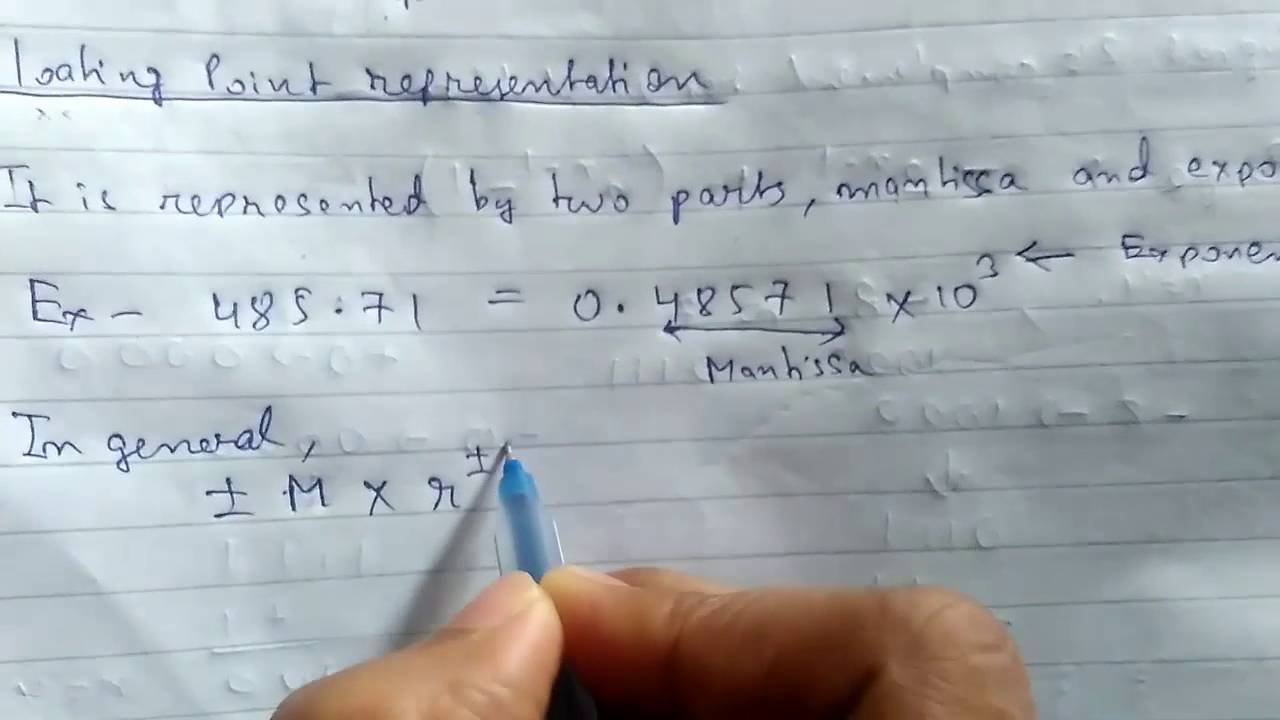 loating Point representation
It is represented by two parts, mantissa and expo
Ex - 485.71 = 0.48571 × 10³ ← Exponen
Mantissa
In general,
± M × r^±